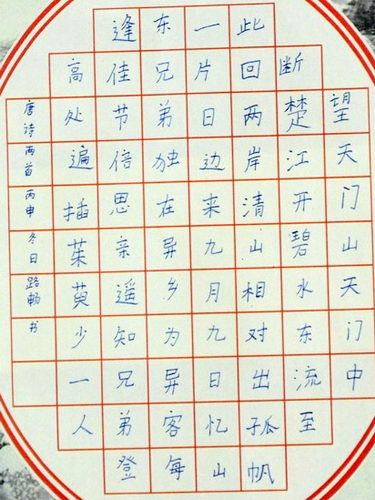 望天门山天门中
断楚江开碧水东流至
此回两岸清山相对出孤帆
一片日边来九月九日忆山
东兄弟独在异乡为异客每
逢佳节倍思亲遥知兄弟登
高处遍插茱萸少一人
唐诗两首丙申冬日路畅书